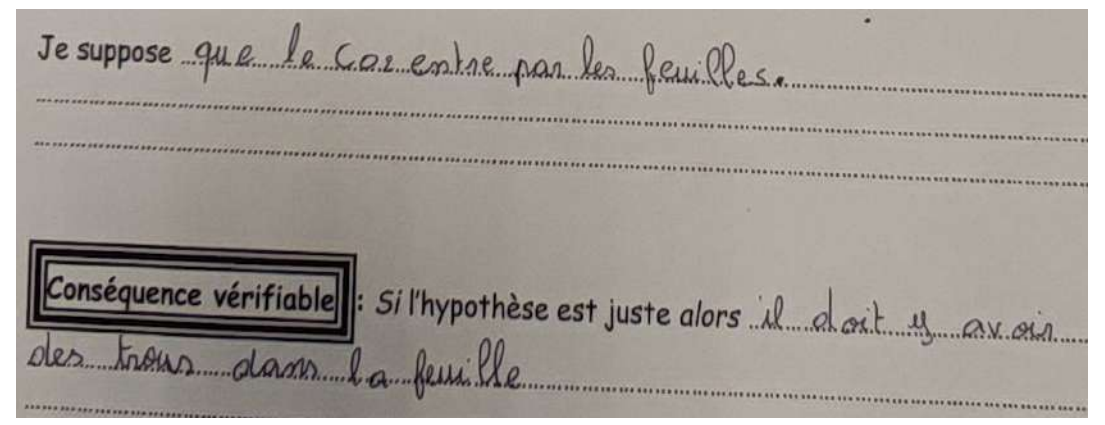 Je suppose que le CO2 entre par les feuilles.
Conséquence vérifiable : Si l'hypothèse est juste alors il doit y avoir
des trous dans la feuille